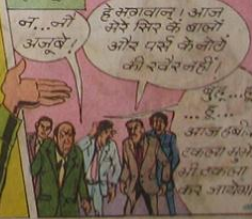 न...नौ
अजूबे!
हे भगवान! आज
मेरे सिर के बालों
और पर्स के नोटों
की खैर नहीं!
आज हबीब
टकला मुझे
भी टकला
कर जायेगा